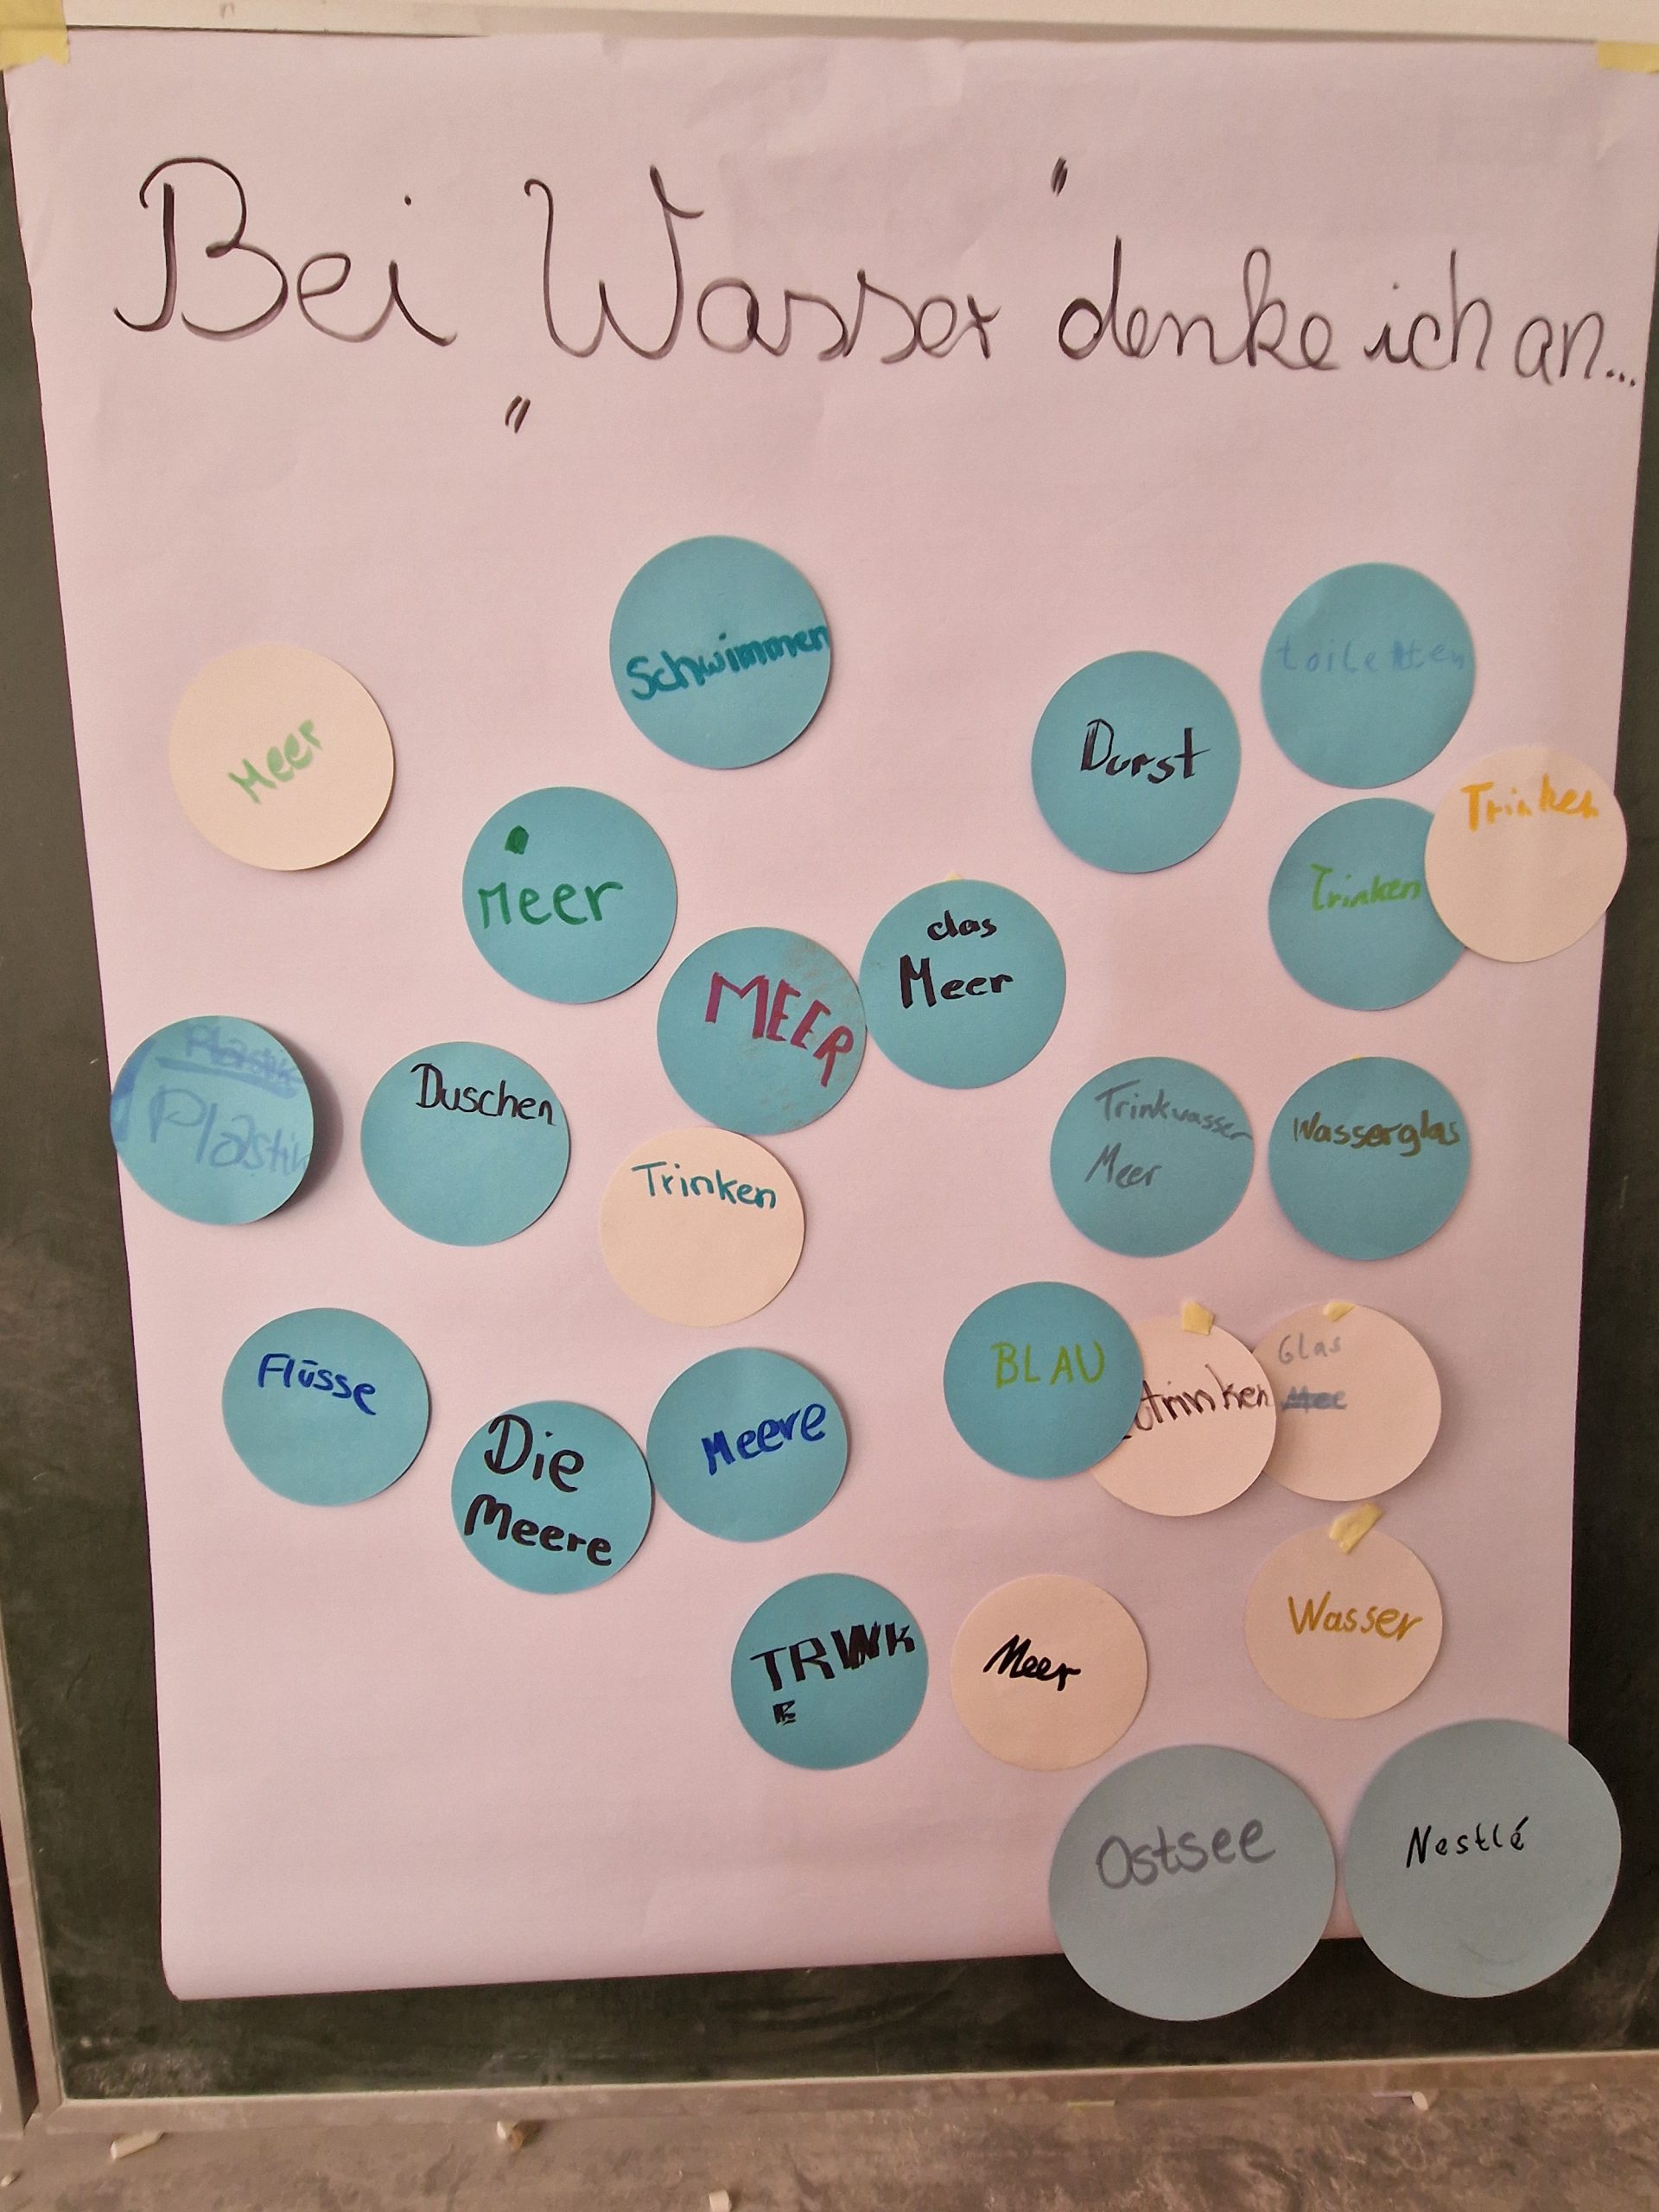 Bei „Wasser" denke ich an...
Schwimmen
toiletten
Meer
Durst
Trinken
Meer
Trinken
das
Meer
MEER
Plastik
Plastik
Duschen
Trinkwasser
Meer
Wasserglas
Trinken
Flüsse
BLAU
trinken
Glas
Mee
Die
Meere
Meere
Wasser
TRINK
E
Meer
Ostsee
Nestlé